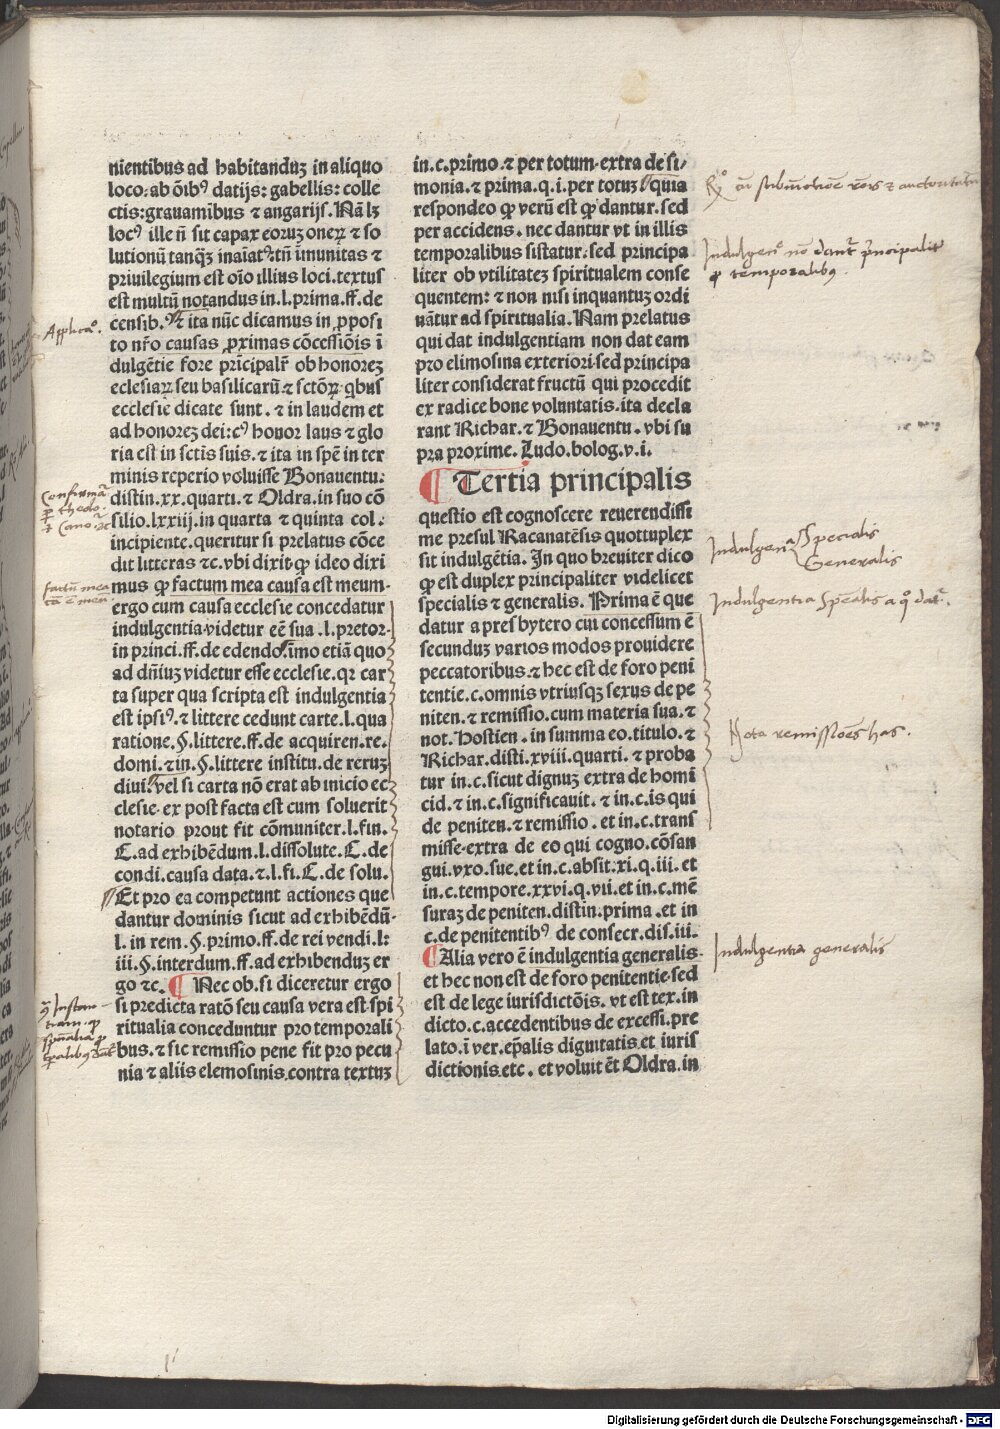 nientibus ad habitanduȝ in aliquo
loco: ab õib⁹ datijs: gabellis: colle
ctis: grauamibus ⁊ angarijs. Nã lȝ
loc⁹ ille ñ sit capax eoruȝ onerꝝ ⁊ so
lutionũ tanq̃ȝ inaĩat⁹: tñ ĩmunitas ⁊
priuilegium est oĩo illius loci. textus
est multũ notandus in. l. prima. ff. de
censib. Et ita nũc dicamus in ꝓposi
to nr̃o causas ꝓximas cõcessiõis ĩ
dulgẽtie fore pr̃icipalr̃ ob honoreȝ
eclesiarꝝ seu basilicarũ: ⁊ sctõꝝ: qb̾us
ecclesie dicate sunt. ⁊ in laudem et
ad honoreȝ dei: c⁹ honor laus ⁊ glo
ria est in sctis suis. ⁊ ita in spẽ in ter
minis reperio voluisse Bonauentu.
distin. xx. quarti. ⁊ Oldra. in suo cõ
silio. lxxiij. in quarta ⁊ quinta col.
incipiente. queritur si prelatus cõce
dit litteras ⁊c. vbi dixit ꝙ ideo dixi
mus ꝙ factum mea causa est meum.
ergo cum causa ecclesie concedatur
indulgentia videtur eẽ sua. l. pretor.
in princi. ff. de edendo. ĩmo etiã quo
ad dñiuȝ videtur esse ecclesie. qr car
ta super qua scripta est indulgentia
est ipsi⁹. ⁊ littere cedunt carte. l. qua
ratione. §. littere. ff. de acquiren. re.
domi. ⁊ in. §. littere institu. de reruȝ
diui. vel si carta nõ erat ab inicio ec
clesie. ex post facta est cum soluerit
notario prout fit cõmuniter. l. fin.
C. ad exhibẽdum. l. dissolute. C. de
condi. causa data. ⁊. l. fi. C. de solu.
Et pro ea competunt actiones que
dantur dominis sicut ad exhibẽdũ.
l. in rem. §. primo. ff. de rei vendi. l.
iii. §. interdum. ff. ad exhibenduȝ er
go ⁊c. ¶ Nec ob. si diceretur ergo
si predicta ratõ seu causa vera est. spi
ritualia conceduntur pro temporali
bus. ⁊ sic remissio pene fit pro pecu
nia ⁊ aliis elemosinis. contra textuȝ
Applicaõ.
factũ mea
cã ẽ meũ
in. c. primo. ⁊ per totum. extra de si/
monia. ⁊ prima. q. i. per totuȝ. quia
respondeo ꝙ verũ est ꝙ dantur. sed
per accidens. nec dantur vt in illis
temporalibus sistatur: sed principa
liter ob vtilitateȝ spiritualem conse
quentem: ⁊ non nisi inquantuȝ ordi
nãtur ad spiritualia. Nam prelatus
qui dat indulgentiam non dat eam
pro elimosina exteriori. sed principa
liter considerat fructũ qui procedit
ex radice bone voluntatis. ita decla
rant Richar. ⁊ Bonauentu. vbi su
pra proxime. Ludo. bolog. v. i.
¶ Tertia principalis
questio est cognoscere reuerendissi
me presul Racanatẽsis quottuplex
sit indulgẽtia. In quo breuiter dico
ꝙ est duplex principaliter videlicet
specialis ⁊ generalis. Prima ẽ que
datur a presbytero cui concessum ẽ
secunduȝ varios modos prouidere
peccatoribus. ⁊ hec est de foro peni
tentie. c. omnis vtriusqȝ sexus de pe
niten. ⁊ remissio. cum materia sua. ⁊
not. Hostien. in summa eo. titulo. ⁊
Richar. disti. xviii. quarti. ⁊ proba
tur in. c. sicut dignuȝ extra de homi
cid. ⁊ in. c. significauit. ⁊ in. c. is qui
de peniten. ⁊ remissio. et in. c. trans
misse. extra de eo qui cogno. cõsan
gui. vxo. sue. et in. c. absit. xi. q. iii. et
in. c. tempore. xxvi. q. vii. et in. c. mẽ
suraȝ de peniten. distin. prima. et in
c. de penitentib⁹ de consecr. dis. iii.
¶ Alia vero ẽ indulgentia generalis.
et hec non est de foro penitentie. sed
est de lege iurisdictõis. vt est tex. in
dicto. c. accedentibus de excessi. pre
lato. ĩ ver. ep̃alis dignitatis. et iuris
dictionis. etc. et voluit ẽt Oldra. in
Indulgen⁾ nõ dent̃ pr̃incipalit̃
ꝓ temporalibꝫ.
Indulgen⁾ Specialis
Generalis
Indulgentia Spẽalis a q̊ dat̃.
Nota remissiões has.
Indulgentia generalis
Digitalisierung gefördert durch die Deutsche Forschungsgemeinschaft - DFG